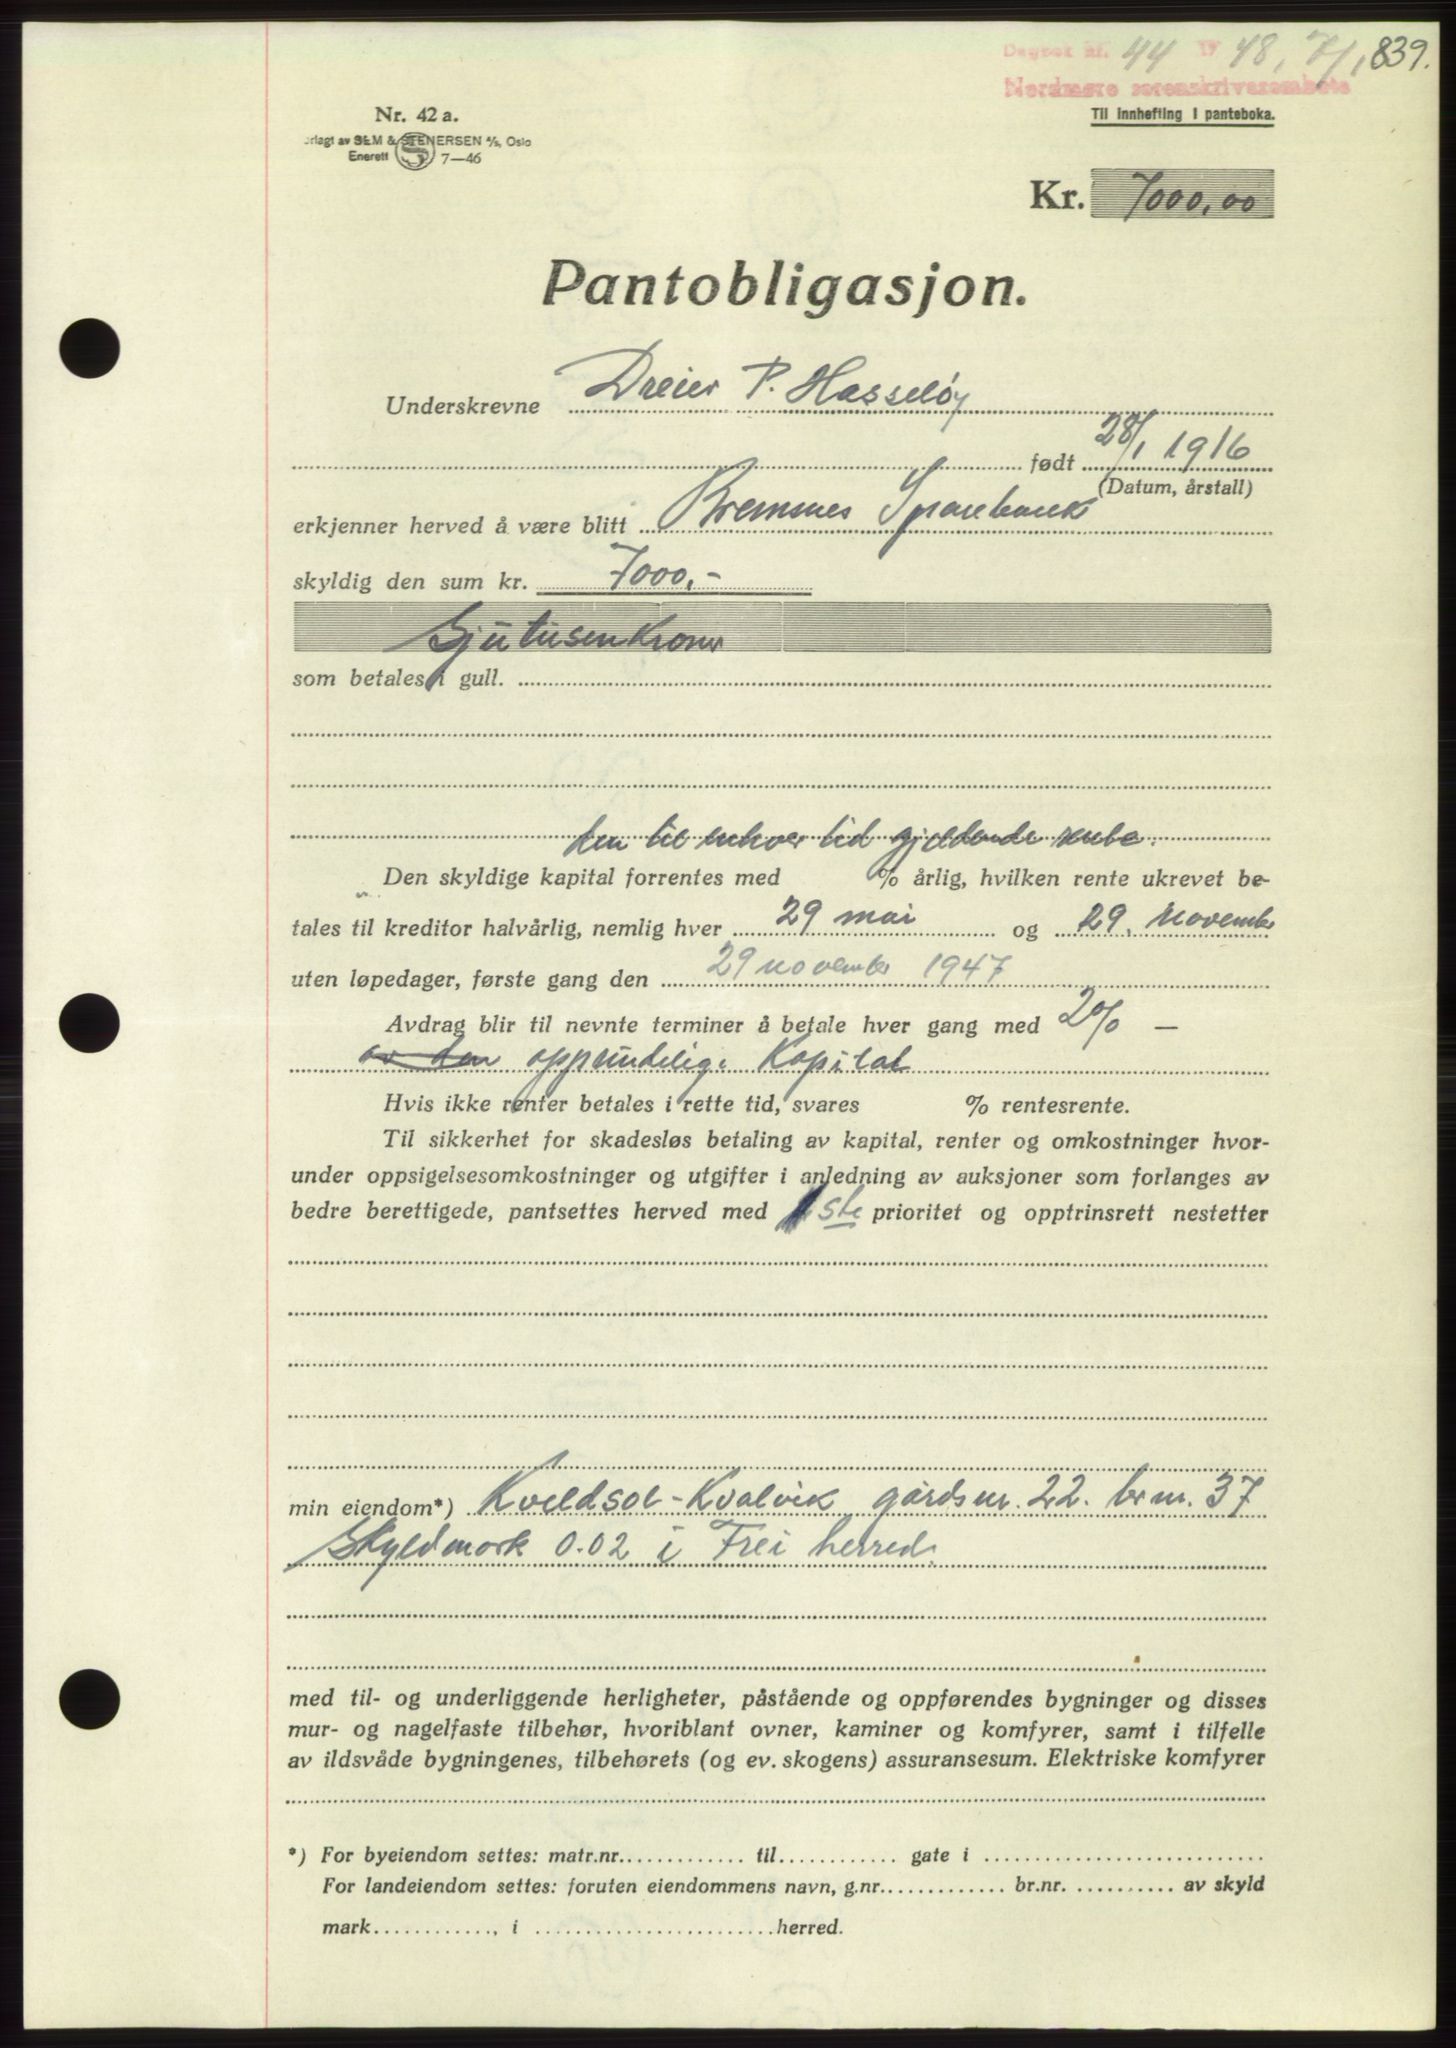 Dagbok nr. 44 19 48, 7/1 839.
Nordmøre sorenskriverembete
Til innhefting i panteboka.
Nr. 42 a.
orlagt av SEM & STENERSEN A/S, Oslo
Enerett S 7—46
Kr. 7000,00
Pantobligasjon.
Underskrevne Dreier P. Hasseløy
født 28/1 1916
(Datum, årstall)
erkjenner herved å være blitt Bremsnes Sparebank
skyldig den sum kr. 7000,-
Sjutusenkroner
som betales i gull.
den til enhver tid gjeldende rente.
Den skyldige kapital forrentes med % årlig, hvilken rente ukrevet be-
tales til kreditor halvårlig, nemlig hver 29 mai og 29. november
uten løpedager, første gang den 29 november 1947
Avdrag blir til nevnte terminer å betale hver gang med 2% —
av den opprindelige Kapital
Hvis ikke renter betales i rette tid, svares % rentesrente.
Til sikkerhet for skadesløs betaling av kapital, renter og omkostninger hvor-
under oppsigelsesomkostninger og utgifter i anledning av auksjoner som forlanges av
bedre berettigede, pantsettes herved med 1 ste prioritet og opptrinsrett nestetter
min eiendom*) Kveldsol-Kvalvik gårdsnr. 22. brnr. 37
Skyldmark 0.02 i Frei herred.
med til- og underliggende herligheter, påstående og oppførendes bygninger og disses
mur- og nagelfaste tilbehør, hvoriblant ovner, kaminer og komfyrer, samt i tilfelle
av ildsvåde bygningenes, tilbehørets (og ev. skogens) assuransesum. Elektriske komfyrer
*) For byeiendom settes: matr.nr. til gate i
For landeiendom settes: foruten eiendommens navn, g.nr. br.nr. av skyld
mark, i herred.